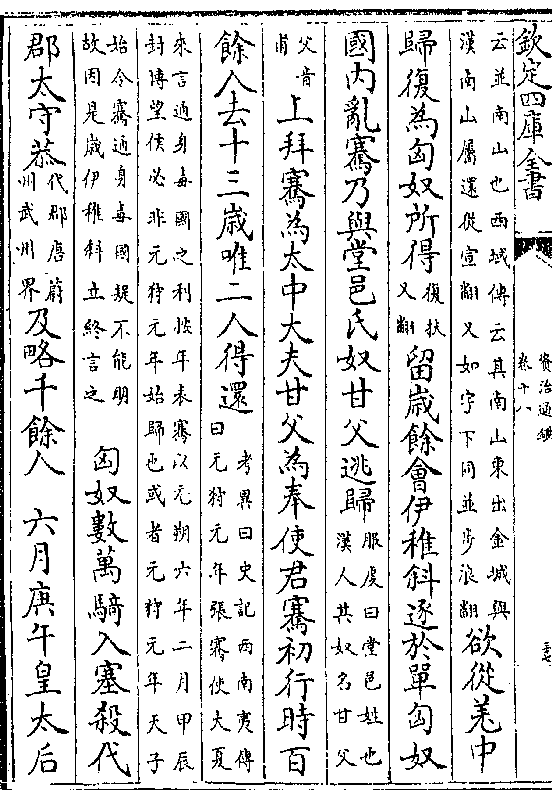 欽定四庫全書
資治通鑑
卷十八
云並南山也西域傳云其南山東出金城與
漢南山屬還從宣翻又如字下同並步浪翻
欲從羌中
歸復為匈奴所得
復扶
又翻
留歲餘會伊稚斜逐於單匈奴
國内亂騫乃與堂邑氏奴甘父逃歸
服虔曰堂邑姓也
漢人其奴名甘父
父音
甫
上拜騫為太中大夫甘父為奉使君騫初行時百
餘人去十三歲唯二人得還
考異曰史記西南夷傳
曰元狩元年張騫使大夏
來言通身毒國之利按年表騫以元朔六年二月甲辰
封博望侯必非元狩元年始歸也或者元狩元年天子
始令騫通身毒國疑不能明
故因是歲伊稚斜立終言之
匈奴數萬騎入塞殺代
郡太守恭
代郡唐蔚
州武州界
及略千餘人
六月庚午皇太后